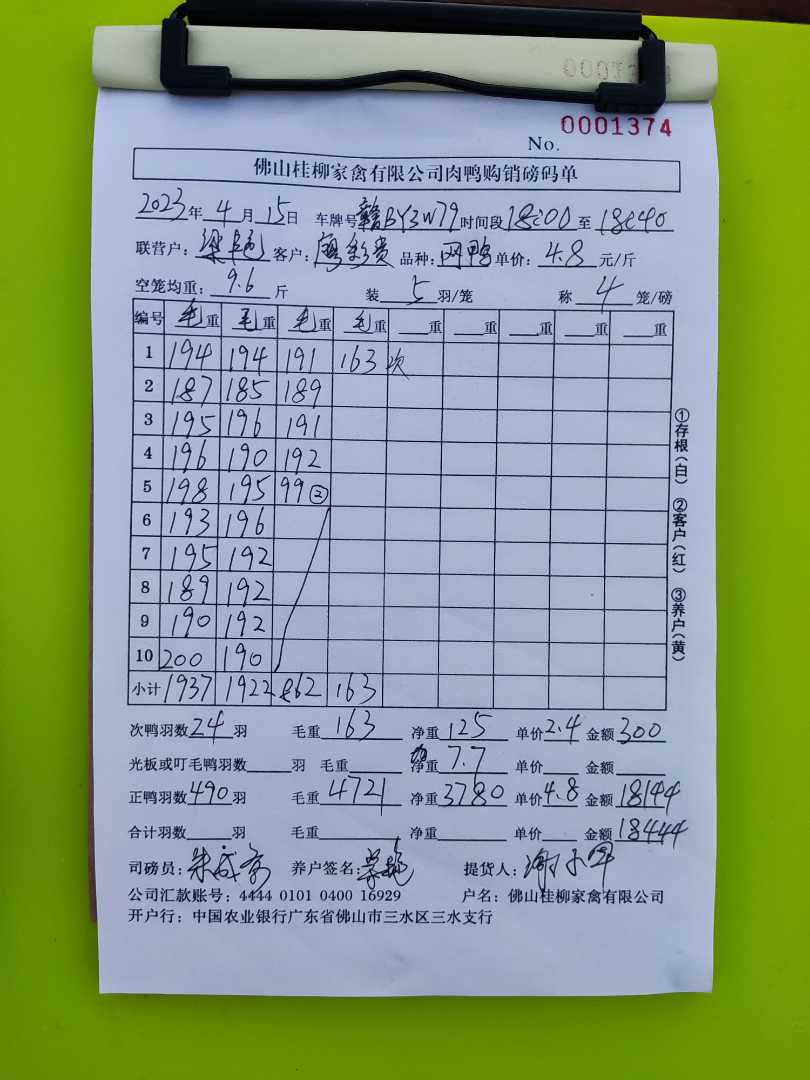 No. 0001374
佛山桂柳家禽有限公司肉鸭购销磅码单
2023年 4月 15日 车牌号 赣BY3W79 时间段 18:00 至 18:40
联营户: 客户: 品种: 网鸭 单价: 4.8 元/斤
空笼均重: 9.6 斤 装 5 羽/笼 称 4 笼/磅
编号 毛重 毛重 毛重 毛重 重 重 重 重 重
1 194 194 191 163 次
2 187 185 189
3 195 196 191
4 196 190 192
5 198 195 99 ②
6 193 196
7 195 192
8 189 192
9 190 192
10 200 190
小计 1937 1922 862 163
次鸭羽数 24 羽 毛重 163 净重 125 单价 2.4 金额 300
光板或叮毛鸭羽数 羽 毛重 净重 7.7 单价 金额
正鸭羽数 490 羽 毛重 4721 净重 3780 单价 4.8 金额 18144
合计羽数 羽 毛重 净重 单价 金额 18444
司磅员: 养户签名: 提货人:
公司汇款账号: 4444 0101 0400 16929 户名: 佛山桂柳家禽有限公司
开户行: 中国农业银行广东省佛山市三水区三水支行
①存根(白) ②客户(红) ③养户(黄)